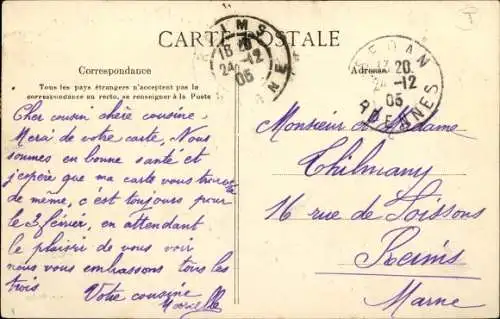 CARTE POSTALE
Correspondance
Tous les pays étrangers n'acceptent pas la
correspondance au recto, se renseigner à la Poste
Cher cousin chère cousine
Merci de votre carte, Nous
sommes en bonne santé et
j'espère que ma carte vous trouve
de même, c'est toujours pour
le 3 février, en attendant
le plaisir de vous voir
nous vous embrassons tous les
trois
Votre cousine
Marcelle
REIMS
18 20
24-12
05
MARNE
SEDAN
20
24-12
05
ARDENNES
Adresse
Monsieur et Madame
Thilmany
16 rue de Soissons
Reims
Marne